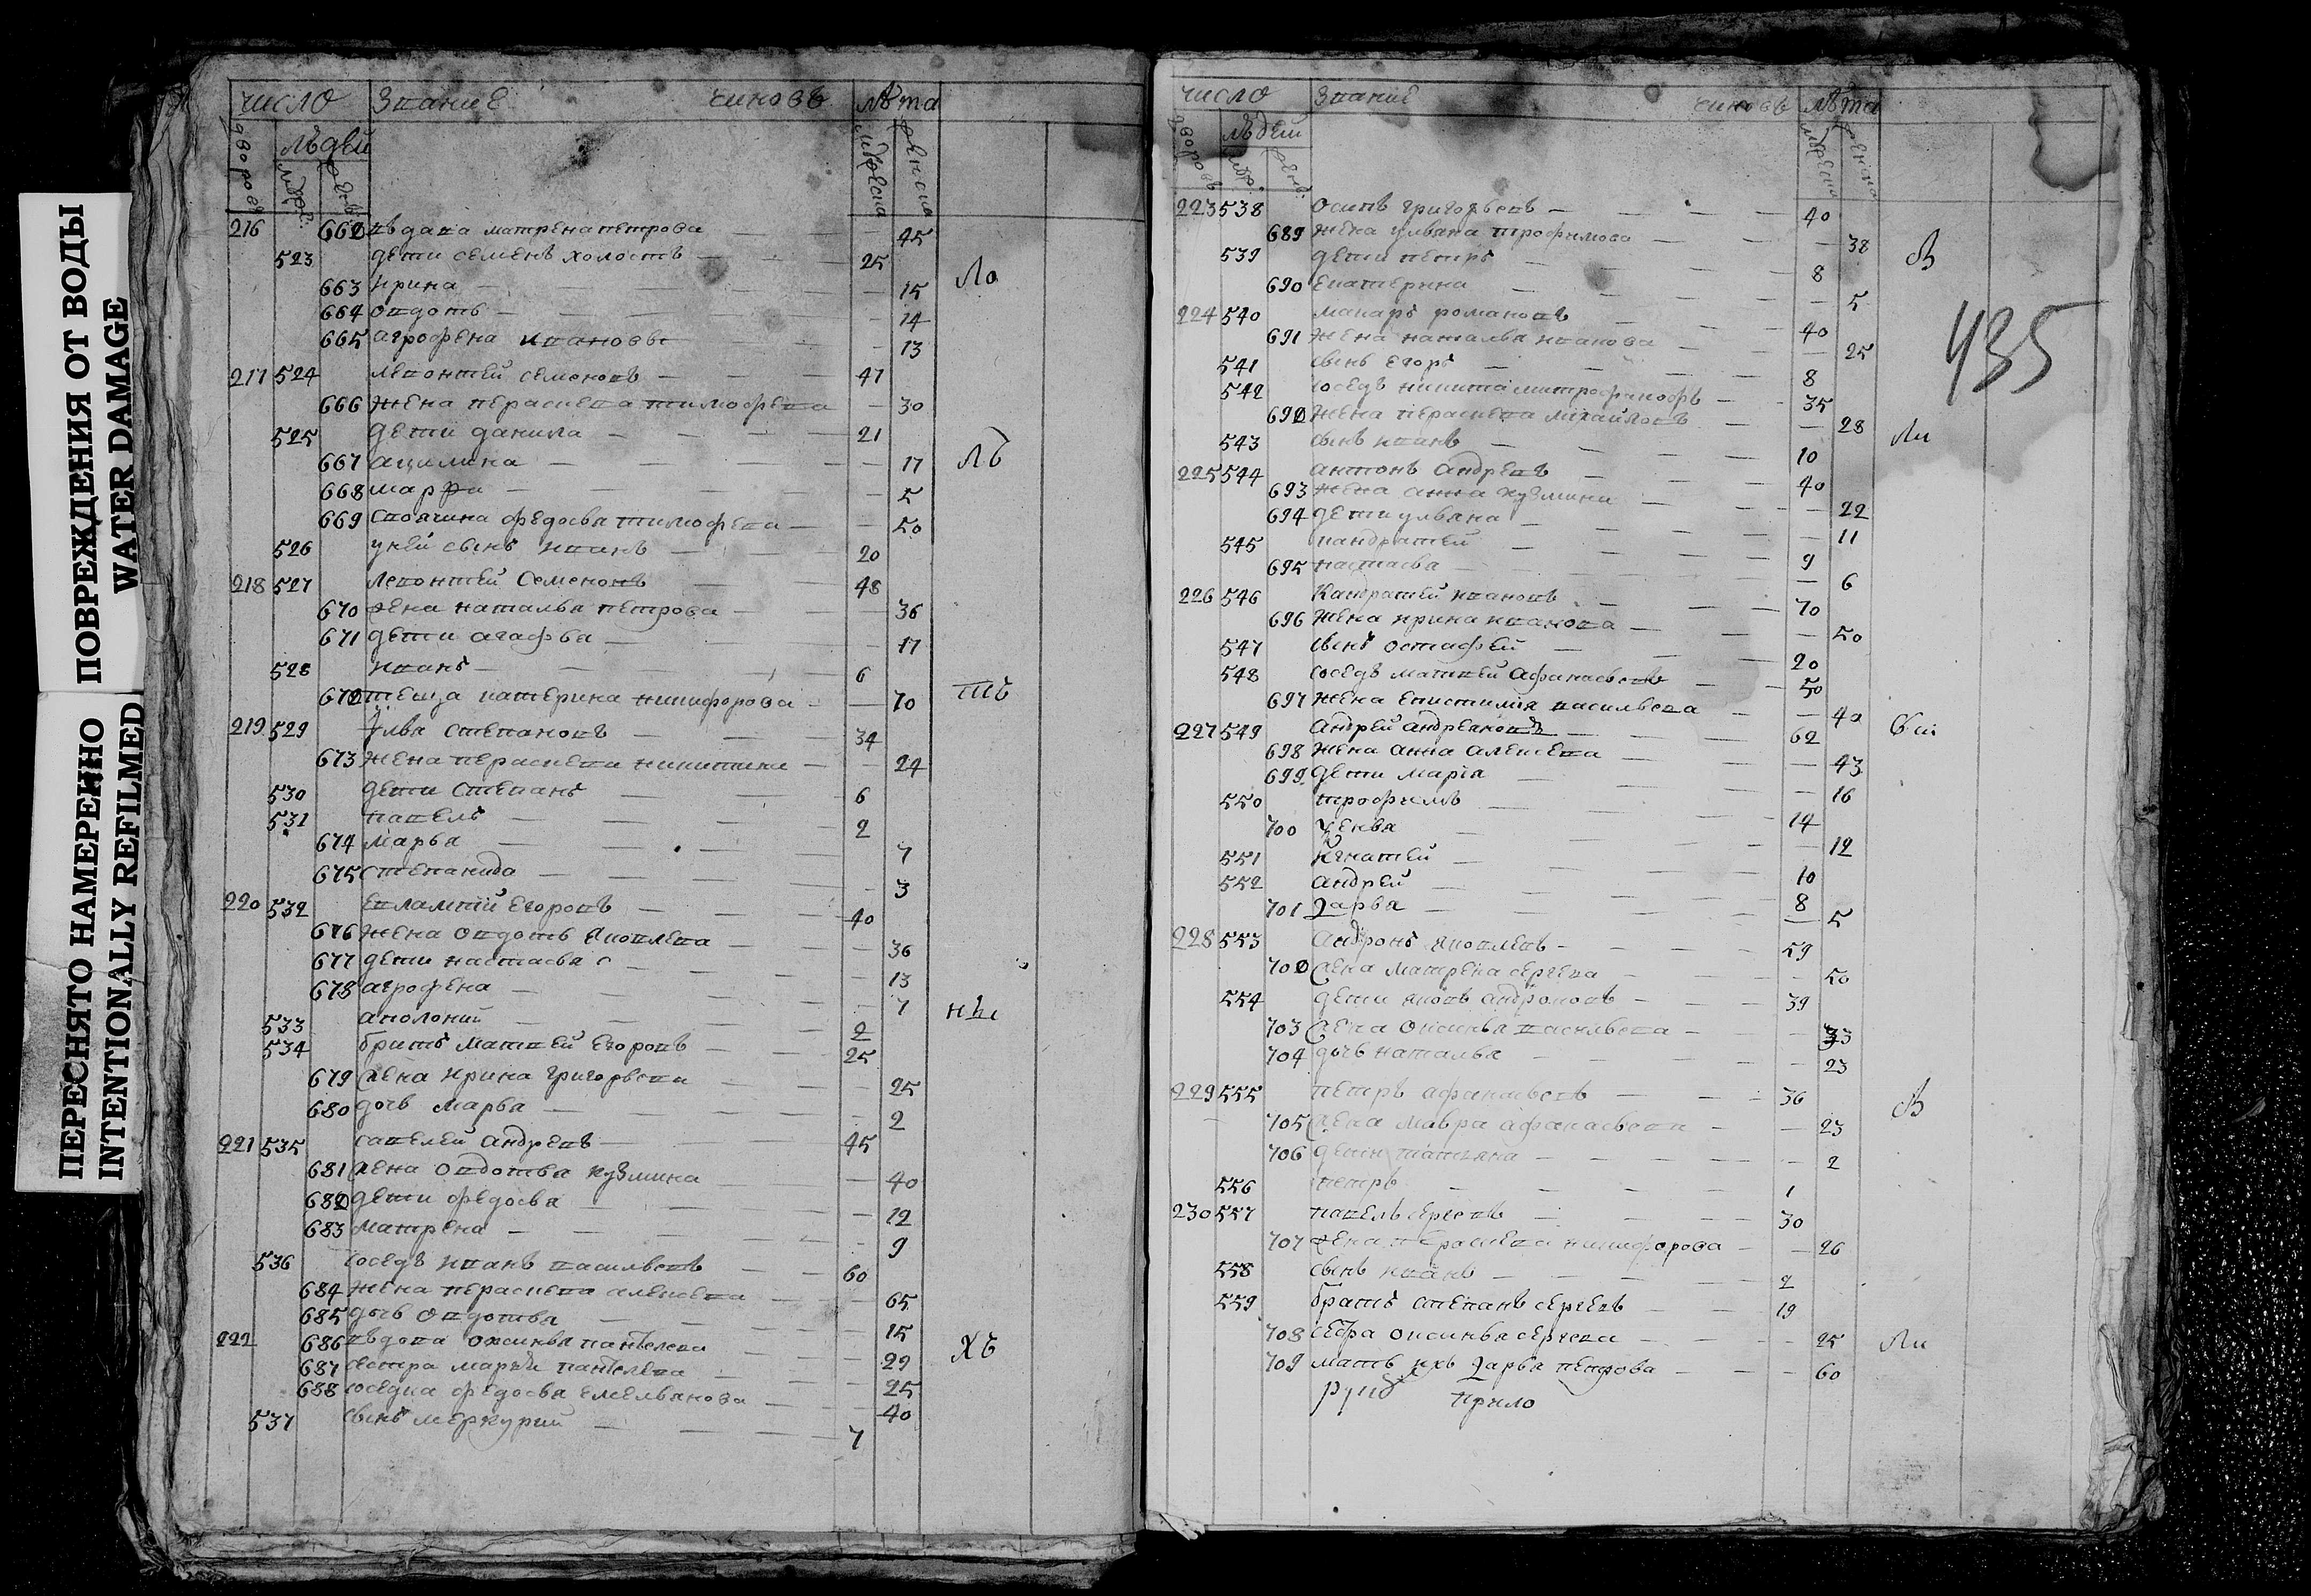 ПЕРЕСНЯТО НАМЕРЕННО ПОВРЕЖДЕНИЯ ОТ ВОДЫ
INTENTIONALLY REFILMED WATER DAMAGE
число звание чиновъ лѣта
дворовъ людей
216 662 вдава матрена петрова — 45
523 дети семенъ холостъ — 25
663 ирина — 15
664 овдоть — 14
665 агрофена ивановы — 13
217 524 левонтей семеновъ — 47
666 жена парасковя тимофева — 30
525 дети данила — 21
667 акулина — 17
668 марфа — 5
669 своячина федосья тимофева — 50
526 у ней сынъ иванъ — 20
218 527 левонтей семеновъ — 48
670 жена наталья петрова — 36
671 дети агафья — 17
528 иванъ — 6
672 теща катерина никифорова — 70
219 529 улья степановъ — 34
673 жена никитина — 24
530 дети степанъ — 6
531 павелъ — 2
674 марья — 7
675 степанида — 3
220 532 евлампий егоровъ — 40
676 жена овдоть яковлева — 36
677 дети настасья — 13
678 агрофена — 7
533 аполоний — 2
534 братъ матвей егоровъ — 25
679 жена ирина григорьева — 25
680 дочь марья — 2
221 535 савелей андревъ — 45
681 жена овдотья кузмина — 40
682 дети федосья — 12
683 матрена — 9
536 соседъ иванъ васильевъ — 60
684 жена алексева — 65
685 дочь овдотья — 15
222 686 вдова оксинья пантелева — 29
687 сестра пантелева — 25
688 соседка федосья емельянова — 40
537 сынъ меркурий — 7
число звание чиновъ лѣта
дворовъ людей
223 538 осипъ григорьевъ — 40
689 жена ульяна трофимова — 38
539 дети петръ — 8
690 екатерина — 5
224 540 макаръ романовъ — 40
691 жена наталья иванова — 25
541 сынъ егоръ — 8
542 соседъ никита митрофановъ — 35
692 жена михайлова — 28
543 сынъ иванъ — 10
225 544 антонъ андревъ — 40
693 жена анна кузмина — 22
694 дети ульяна — 11
545 кандратей — 9
695 настасья — 6
226 546 кандратей ивановъ — 70
696 жена ирина иванова — 50
547 сынъ остафей — 20
548 соседъ матвей афанасьевъ — 50
697 жена епистимия васильева — 40
227 549 андрей андреяновъ — 62
698 жена анна алексева — 43
699 дети мария — 16
550 трофимъ — 14
700 — 12
551 игнатей — 10
552 андрей — 8
701 дарья — 5
228 553 андронъ яковлевъ — 59
702 жена матрена сергева — 50
554 дети яковъ андроновъ — 39
703 жена оксинья васильева — 33
704 дочь наталья — 23
229 555 петръ афанасьевъ — 36
705 жена мавра афанасьева — 23
706 дети татияна — 2
556 петръ — 1
230 557 павелъ сергевъ — 30
707 жена никифорова — 26
558 сынъ иванъ — 2
559 братъ степанъ сергевъ — 19
708 сестра оксинья сергева — 25
709 мать ихъ дарья петрова — 60
435